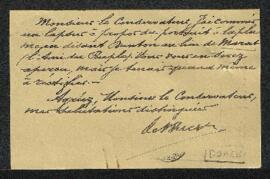 Monsieur le Conservateur, J'ai commis
un lapsus à propos du portrait à la plu
me, en disant Danton au lieu de Marat
(l'Ami du Peuple). Vous vous en serez
aperçu, mais je tenais quand même
à rectifier.
Agréez, Monsieur le Conservateur,
mes salutations distinguées